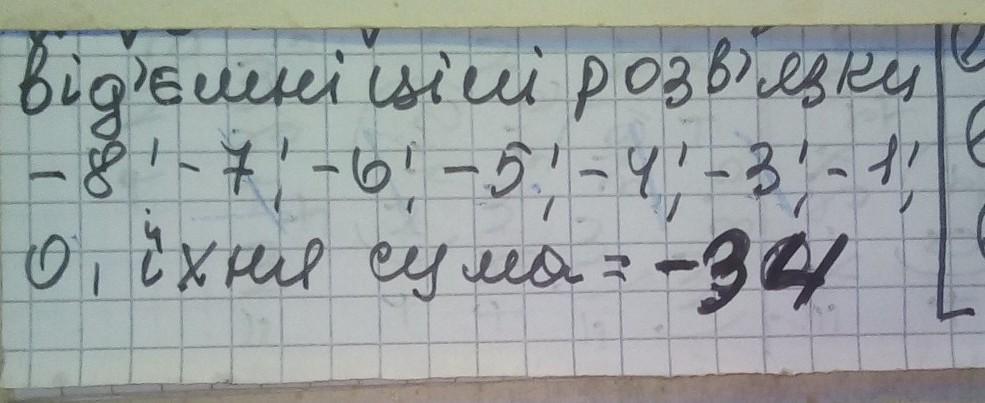 від'ємні цілі розв'язки
-8; -7; -6; -5; -4; -3; -1;
0, їхня сума = -34